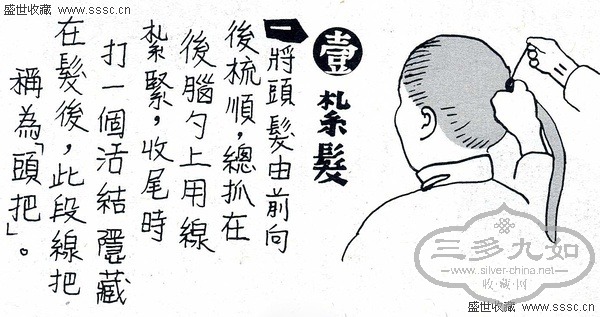 盛世收藏 www.sssc.cn
盛世收藏 www.sssc.cn
壹
紮髮
一將頭髮由前向
後梳順，總抓在
後腦勺上用線
紮緊，收尾時
打一個活結隱藏
在髮後，此段線把
稱為「頭把」。
三多九如
www.silver-china.net
收藏·网
盛世收藏 www.sssc.cn